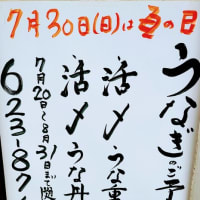 7月30日(日)は丑の日
うなぎのご予
活〆うな重
活〆うな丼
7月20日~8月31日まで
623-87